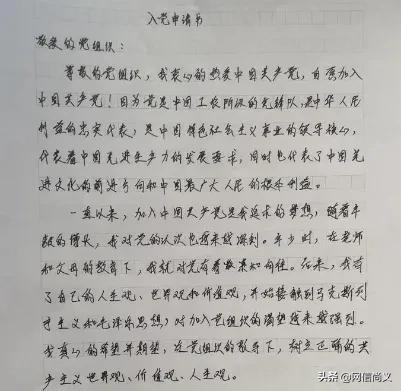 入党申请书
敬爱的党组织：
尊敬的党组织，我衷心的热爱中国共产党，自愿加入
中国共产党！因为党是中国工农阶级的先锋队，是中华人民
利益的忠实代表，是中国特色社会主义事业的领导核心，
代表着中国先进生产力的发展要求，同时也代表了中国先
进文化的前进方向和中国最广大人民的根本利益。
一直以来，加入中国共产党是我追求的梦想，随着年
龄的增长，我对党的认识也越来越深刻。年少时，在老师
和父母的教育下，我就对党有着敬畏和向往。后来，我有
了自己的人生观，世界观和价值观，开始接触到马克斯列
宁主义和毛泽东思想，对加入党组织的渴望越来越强烈。
我真心的希望并期望，在党组织的教导下，树立正确的共
产主义世界观、价值观、人生观。
头条 @网信尚义